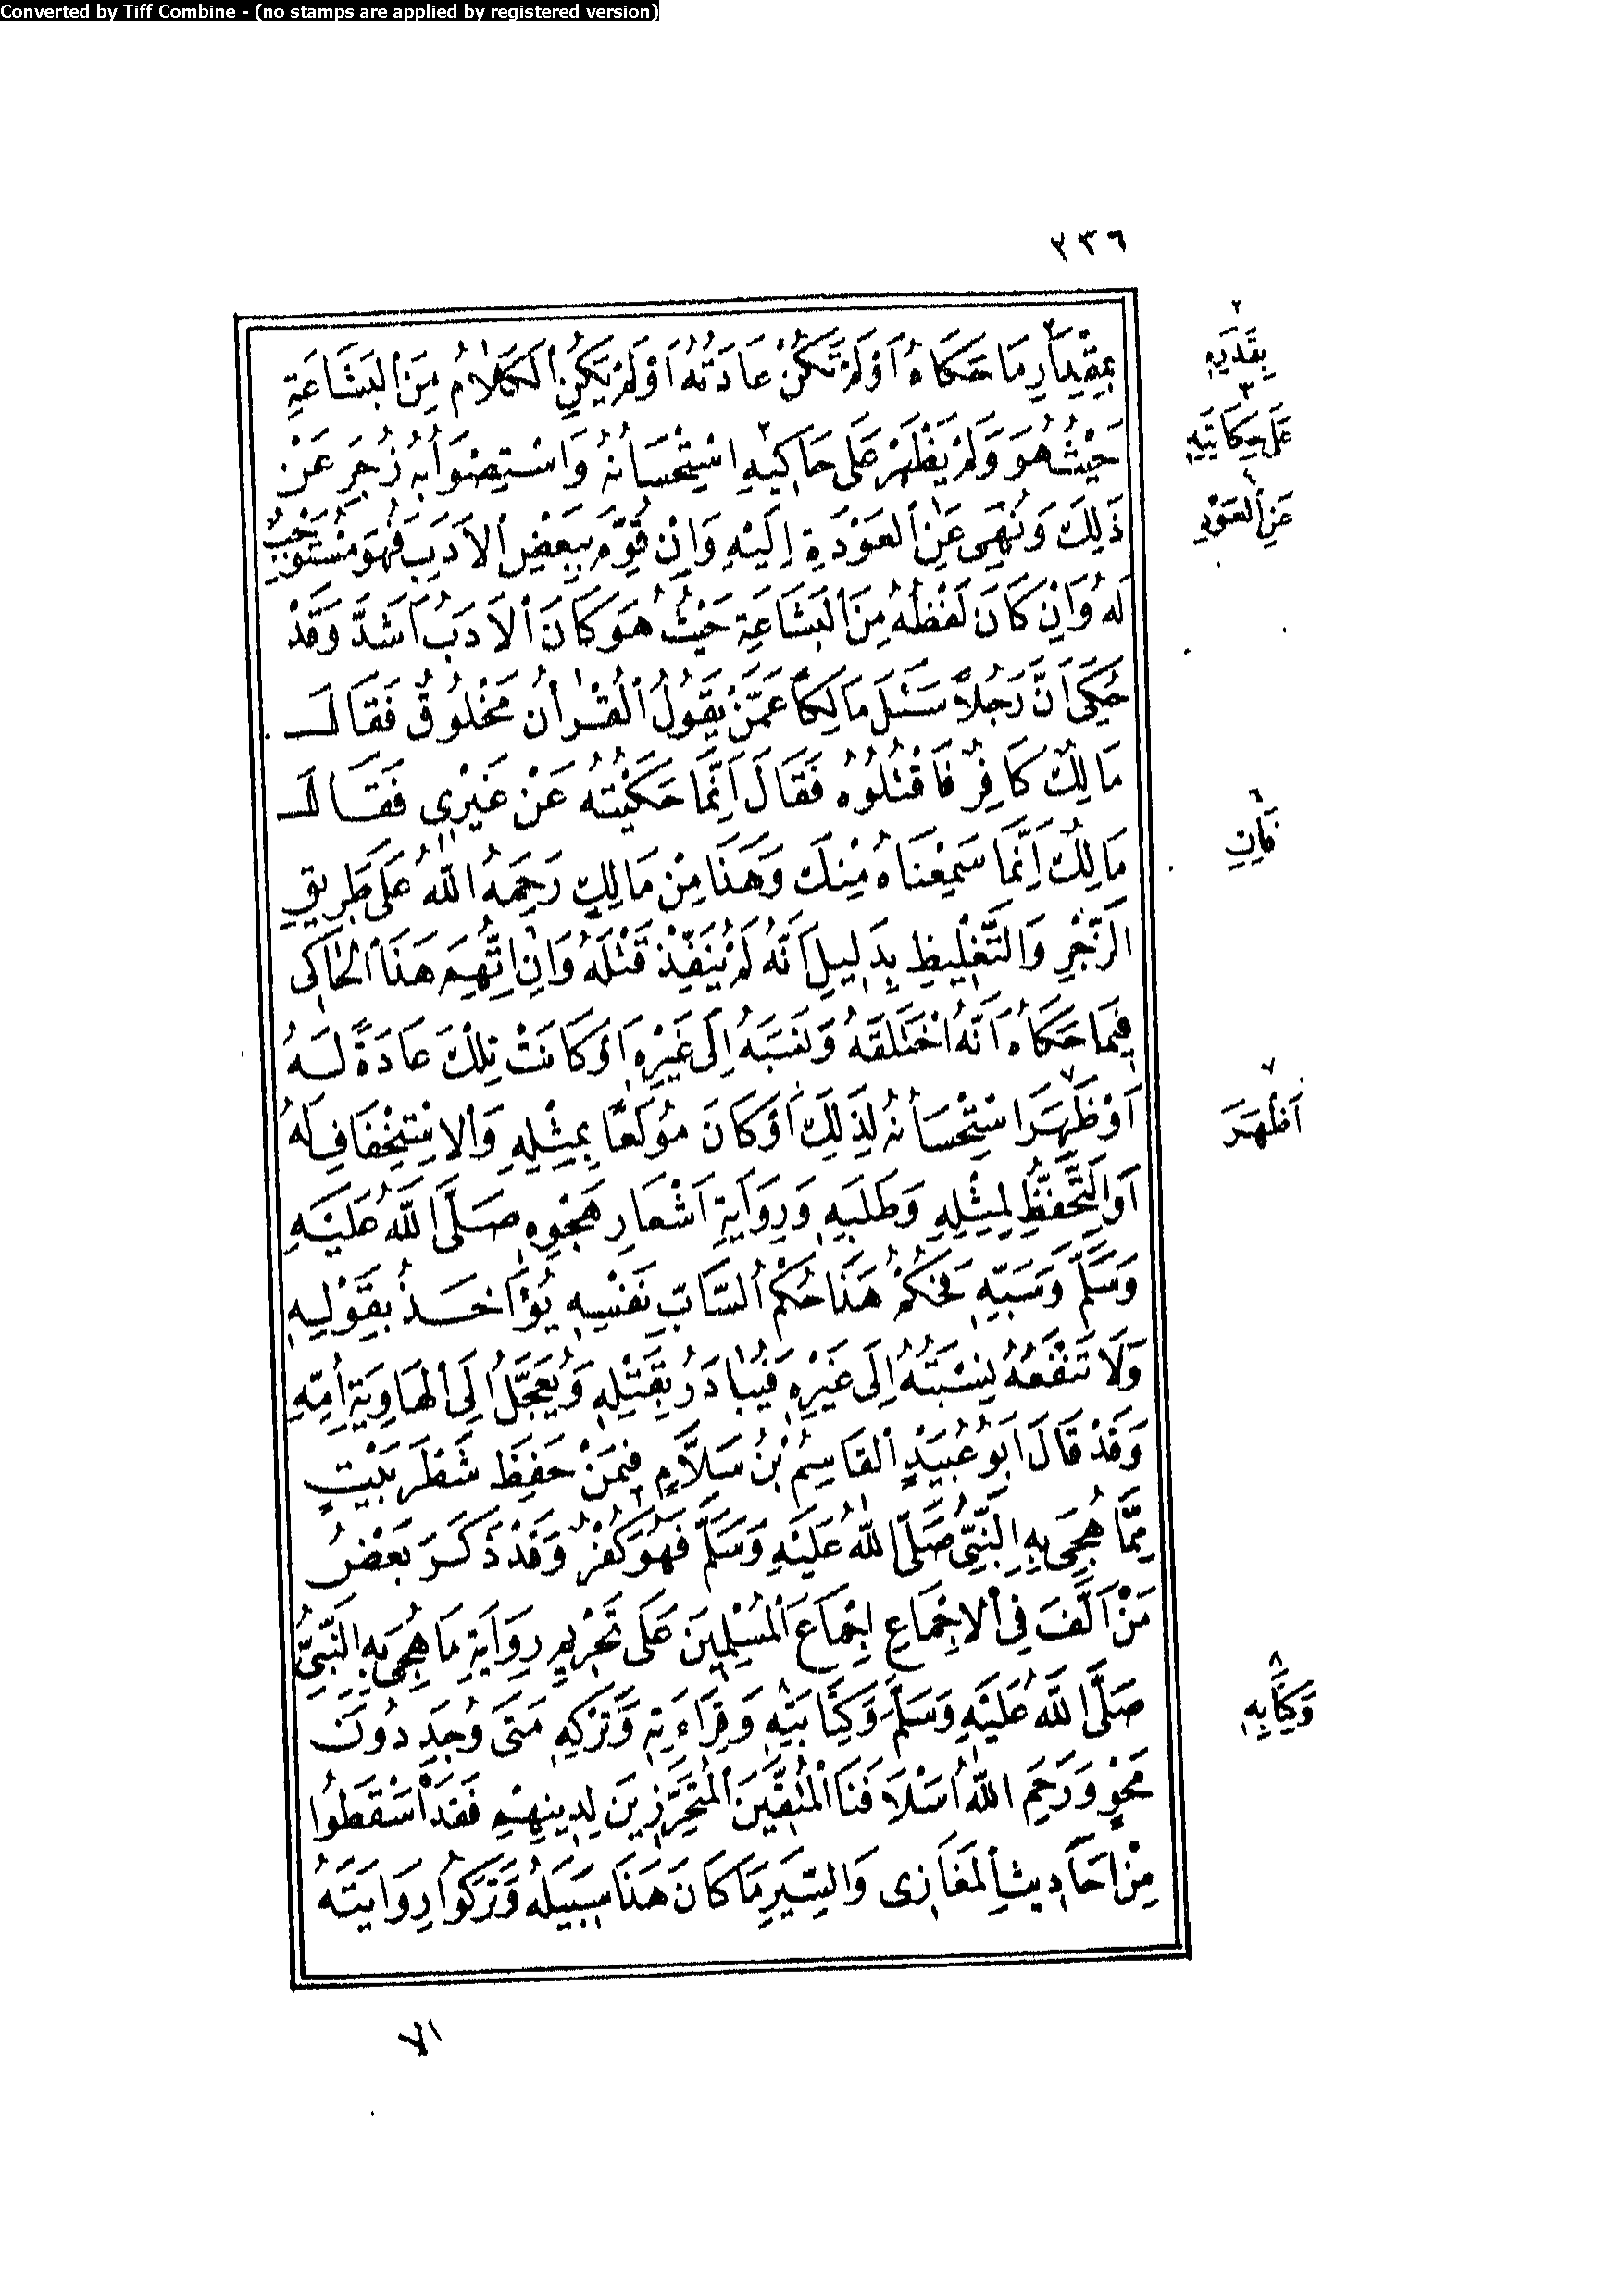 Converted by Tiff Combine - (no stamps are applied by registered version)
٢٣٦
بِمِقْدَارِ مَا حَكَاهُ اَوْ لَمْ تَكُنْ عَادَتُهُ اَوْ لَمْ يَكُنِ الْكَلَامُ مِنَ الْبَشَاعَةِ
حَيْثُ هُوَ وَلَمْ يَظْهَرْ عَلَى حَاكِيهِ اسْتِحْسَانُهُ وَاسْتِصْوَابُهُ زُجِرَ عَنْ
ذَلِكَ وَنُهِىَ عَنِ الْعَوْدَةِ اِلَيْهِ وَاِنْ قُوِّمَ بِبَعْضِ الْاَدَبِ فَهُوَ مُسْتَوْجِبٌ
لَهُ وَاِنْ كَانَ لَفْظُهُ مِنَ الْبَشَاعَةِ حَيْثُ هُوَ كَانَ الْاَدَبُ اَشَدَّ وَقَدْ
حُكِىَ اَنَّ رَجُلاً سَئَلَ مَالِكاً عَمَّنْ يَقُولُ الْقُرْاٰنُ مَخْلُوقٌ فَقَالَ
مَالِكٌ كَافِرٌ فَاقْتُلُوُهُ فَقَالَ اِنَّمَا حَكَيْتُهُ عَنْ غَيْرِى فَقَالَ
مَالِكٌ اِنَّمَا سَمِعْنَاهُ مِنْكَ وَهَذَا مِنْ مَالِكٍ رَحِمَهُ اللّٰهُ عَلَى طَرِيقِ
الزَّجْرِ وَالتَّغْلِيظِ بِدَلِيلِ اَنَّهُ لَمْ يُنَفِّذْ قَتْلَهُ وَاِنِ اتُّهِمَ هَذَا الْحَاكِى
فِيمَا حَكَاهُ اَنَّهُ اخْتَلَقَهُ وَنَسَبَهُ اِلَى غَيْرِهِ اَوْ كَانَتْ تِلْكَ عَادَةً لَهُ
اَوْ ظَهَرَ اسْتِحْسَانُهُ لِذَلِكَ اَوْ كَانَ مُولَعًا بِمِثْلِهِ وَالْاِسْتِخْفَافِ لَهُ
اَوِ التَّحَفُّظِ لِمِثْلِهِ وَطَلَبِهِ وَرِوَايَةِ اَشْعَارِ هَجْوِهِ صَلَّى اللّٰهُ عَلَيْهِ
وَسَلَّمَ وَسَبِّهِ فَحُكْمُ هَذَا حُكْمُ السَّابِّ نَفْسِهِ يُؤَاخَذُ بِقَوْلِهِ
وَلَا تَنْفَعُهُ نِسْبَتُهُ اِلَى غَيْرِهِ فَيُبَادَرُ بِقَتْلِهِ وَيُعَجَّلُ اِلَى الْهَاوِيَةِ اُمِّهِ
وَقَدْ قَالَ اَبُو عُبَيْدٍ الْقَاسِمُ بْنُ سَلَّامٍ فِيمَنْ حَفِظَ شَطْرَ بَيْتٍ
مِمَّا هُجِىَ بِهِ النَّبِىُّ صَلَّى اللّٰهُ عَلَيْهِ وَسَلَّمَ فَهُوَ كُفْرٌ وَقَدْ ذَكَرَ بَعْضُ
مَنْ اَلَّفَ فِى الْاِجْمَاعِ اِجْمَاعَ الْمُسْلِمِينَ عَلَى تَحْرِيمِ رِوَايَةِ مَا هُجِىَ بِهِ النَّبِىُّ
صَلَّى اللّٰهُ عَلَيْهِ وَسَلَّمَ وَكِتَابَتِهِ وَقِرَاءَتِهِ وَتَرْكِهِ مَتَى وُجِدَ دُونَ
مَحْوٍ وَرَحِمَ اللّٰهُ اَسْلَافَنَا الْمُتَّقِينَ الْمُتَحَرِّزِينَ لِدِينِهِمْ فَقَدْ اَسْقَطُوا
مِنْ اَحَادِيثِ الْمَغَازِى وَالسِّيَرِ مَا كَانَ هَذَا سَبِيلَهُ وَتَرَكُوا رِوَايَتَهُ
٢
بِقَدَرِ
٣
عَلَى حِكَايَتِهِ
٤
عَنِ الْعَوْدِ
٦
فَاِنِ
٧
اَظْهَرَ
٨
وَكِتَابِهِ
الا